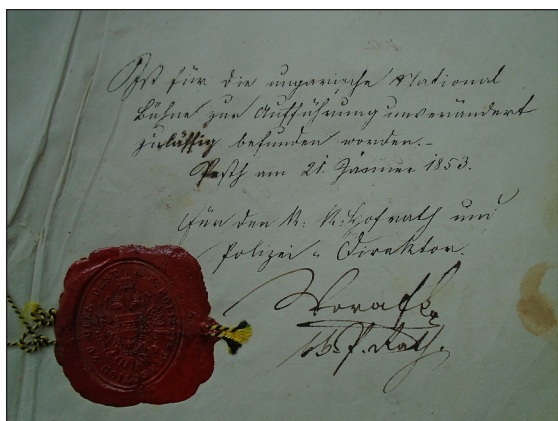 Ist für die ungarische National
Bühne zur Aufführung unverändert
zulässig befunden worden.-
Pesth am 21. Jänner 1853.
für den K: K: Hofrath und
Polizei = Direktor.